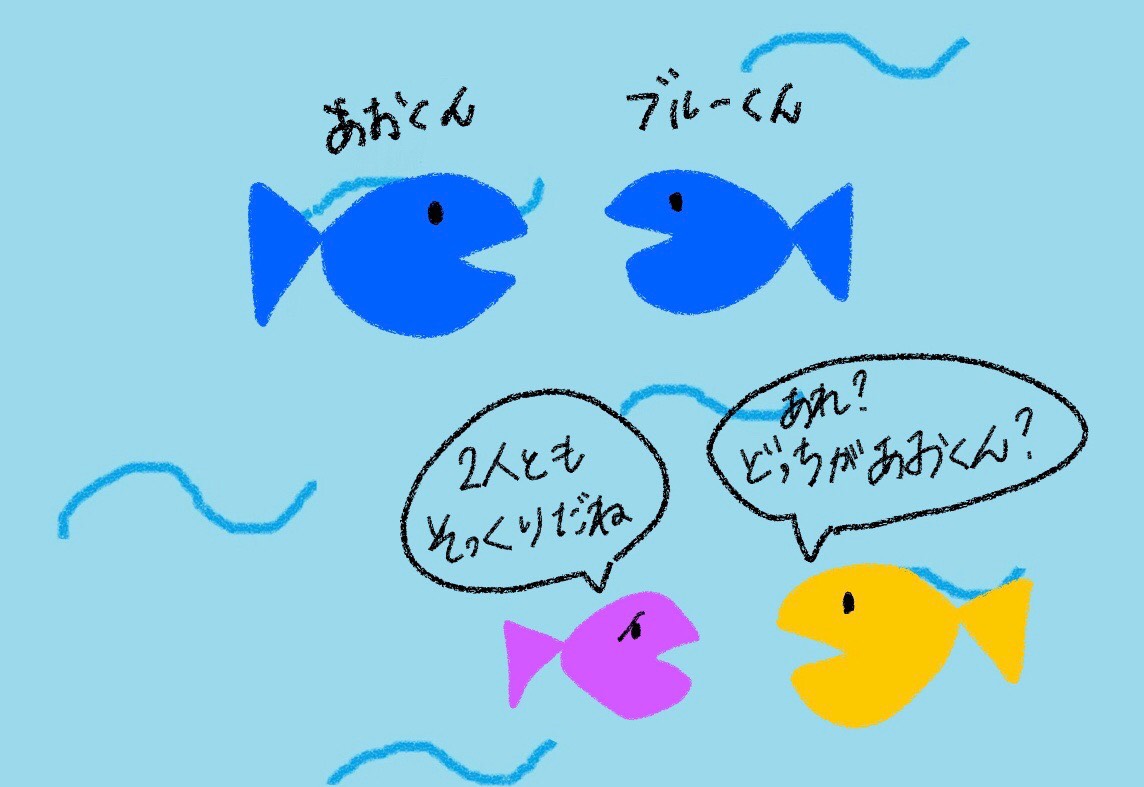 あおくん
ブルーくん
2人とも
そっくりだね
あれ?
どっちがあおくん?